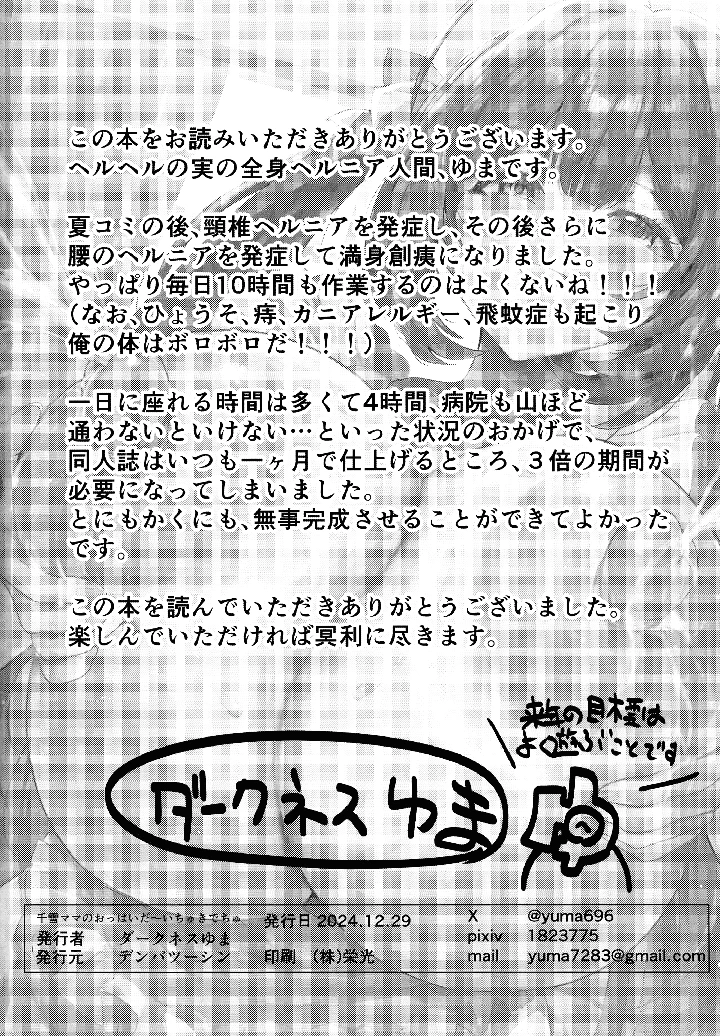 この本をお読みいただきありがとうございます。
ヘルヘルの実の全身ヘルニア人間、ゆまです。
夏コミの後、頸椎ヘルニアを発症し、その後さらに
腰のヘルニアを発症して満身創痍になりました。
やっぱり毎日10時間も作業するのはよくないね！！！
(なお、ひょうそ、痔、カニアレルギー、飛蚊症も起こり
俺の体はボロボロだ！！！)
一日に座れる時間は多くて4時間、病院も山ほど
通わないといけない…といった状況のおかげで、
同人誌はいつも一ヶ月で仕上げるところ、３倍の期間が
必要になってしまいました。
とにもかくにも、無事完成させることができてよかった
です。
この本を読んでいただきありがとうございました。
楽しんでいただければ冥利に尽きます。
来年の目標は
よく遊ぶことです
ダークネスゆま
へ
千雪ママのおっぱいだーいちゅきでちゅ
発行者 ダークネスゆま
発行元 デンパツーシン
発行日 2024.12.29
印刷 (株)栄光
X @yuma696
pixiv 1823775
mail yuma7283@gmail.com